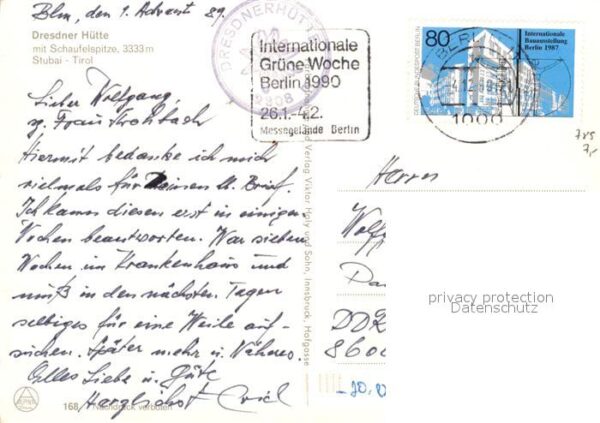 Bln, den 1. Advent 89.
Dresdner Hütte
mit Schaufelspitze, 3333m
Stubai - Tirol
Lieber Wolfgang,
g. Frau
Hiermit bedanke ich mich
vielmals für Deinen lb. Brief.
Ich kann diesen erst in einigen
Wochen beantworten. War sieben
Wochen im Krankenhaus und
muß in den nächsten Tagen
selbiges für eine Weile auf-
suchen. Später mehr u. Näheres.
Alles Liebe u. Gute
Herzlichst
168 Nachdruck verboten
DRESDNERHÜTTE
Internationale
Grüne Woche
Berlin 1990
26.1.-4.2.
Messegelände Berlin
und Verlag Viktor und Sohn, Innsbruck, Hofgasse
80
DEUTSCHE BUNDESPOST BERLIN
Internationale
Bauausstellung
Berlin 1987
BERLIN
1000
785
7,-
Herrn
Wolf
DDR
860
privacy protection
Datenschutz